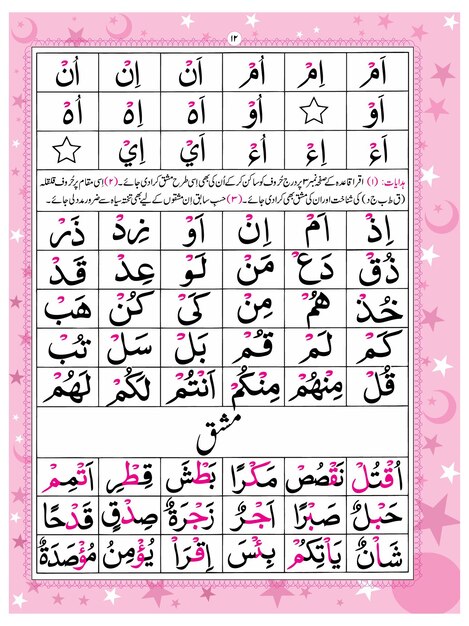 ١٢
اَمْ اِمْ اُمْ اَنْ اِنْ اُنْ
اَوْ اُوْ اَهْ اِهْ اُهْ
اَءْ اِءْ اُءْ اَیْ اِیْ
ہدایات: (۱) اقرا قاعدہ کے صفحہ نمبر ۳ پر درج حُروف کو ساکن کر کے اُن کی بھی اِسی طرح مشق کرا دی جائے۔ (۲) اِسی مقام پر حُروف قلقلہ
(ق ط ب ج د) کی شناخت اور ان کی مشق بھی کرا دی جائے۔ (۳) حسب سابق اِن مشقوں کے لیے بھی تختہ سیاہ سے ضرور مدد لی جائے۔
اِذْ اَمْ اِنْ اَوْ زِدْ ذَرْ
ذُقْ دَعْ مَنْ لَوْ عِدْ قَدْ
خُذْ هُمْ مِنْ كَیْ كُنْ هَبْ
كَمْ لَمْ قُمْ بَلْ سَلْ تُبْ
قُلْ مِنْهُمْ مِنْكُمْ اَنْتُمْ لَكُمْ لَهُمْ
مشق
اُقْتُلْ نَقْصُصْ مَكْرًا بَطْشَ قِطْرِ اَتْمِمْ
حَبْلٌ صَبْرًا اَجْرٌ زَجْرَةٌ صِدْقٍ قَدْحًا
شَاْنٌ يَاْتِكُمْ بِئْسَ اِقْرَاْ يُؤْمِنُ مُؤْصَدَةٌ